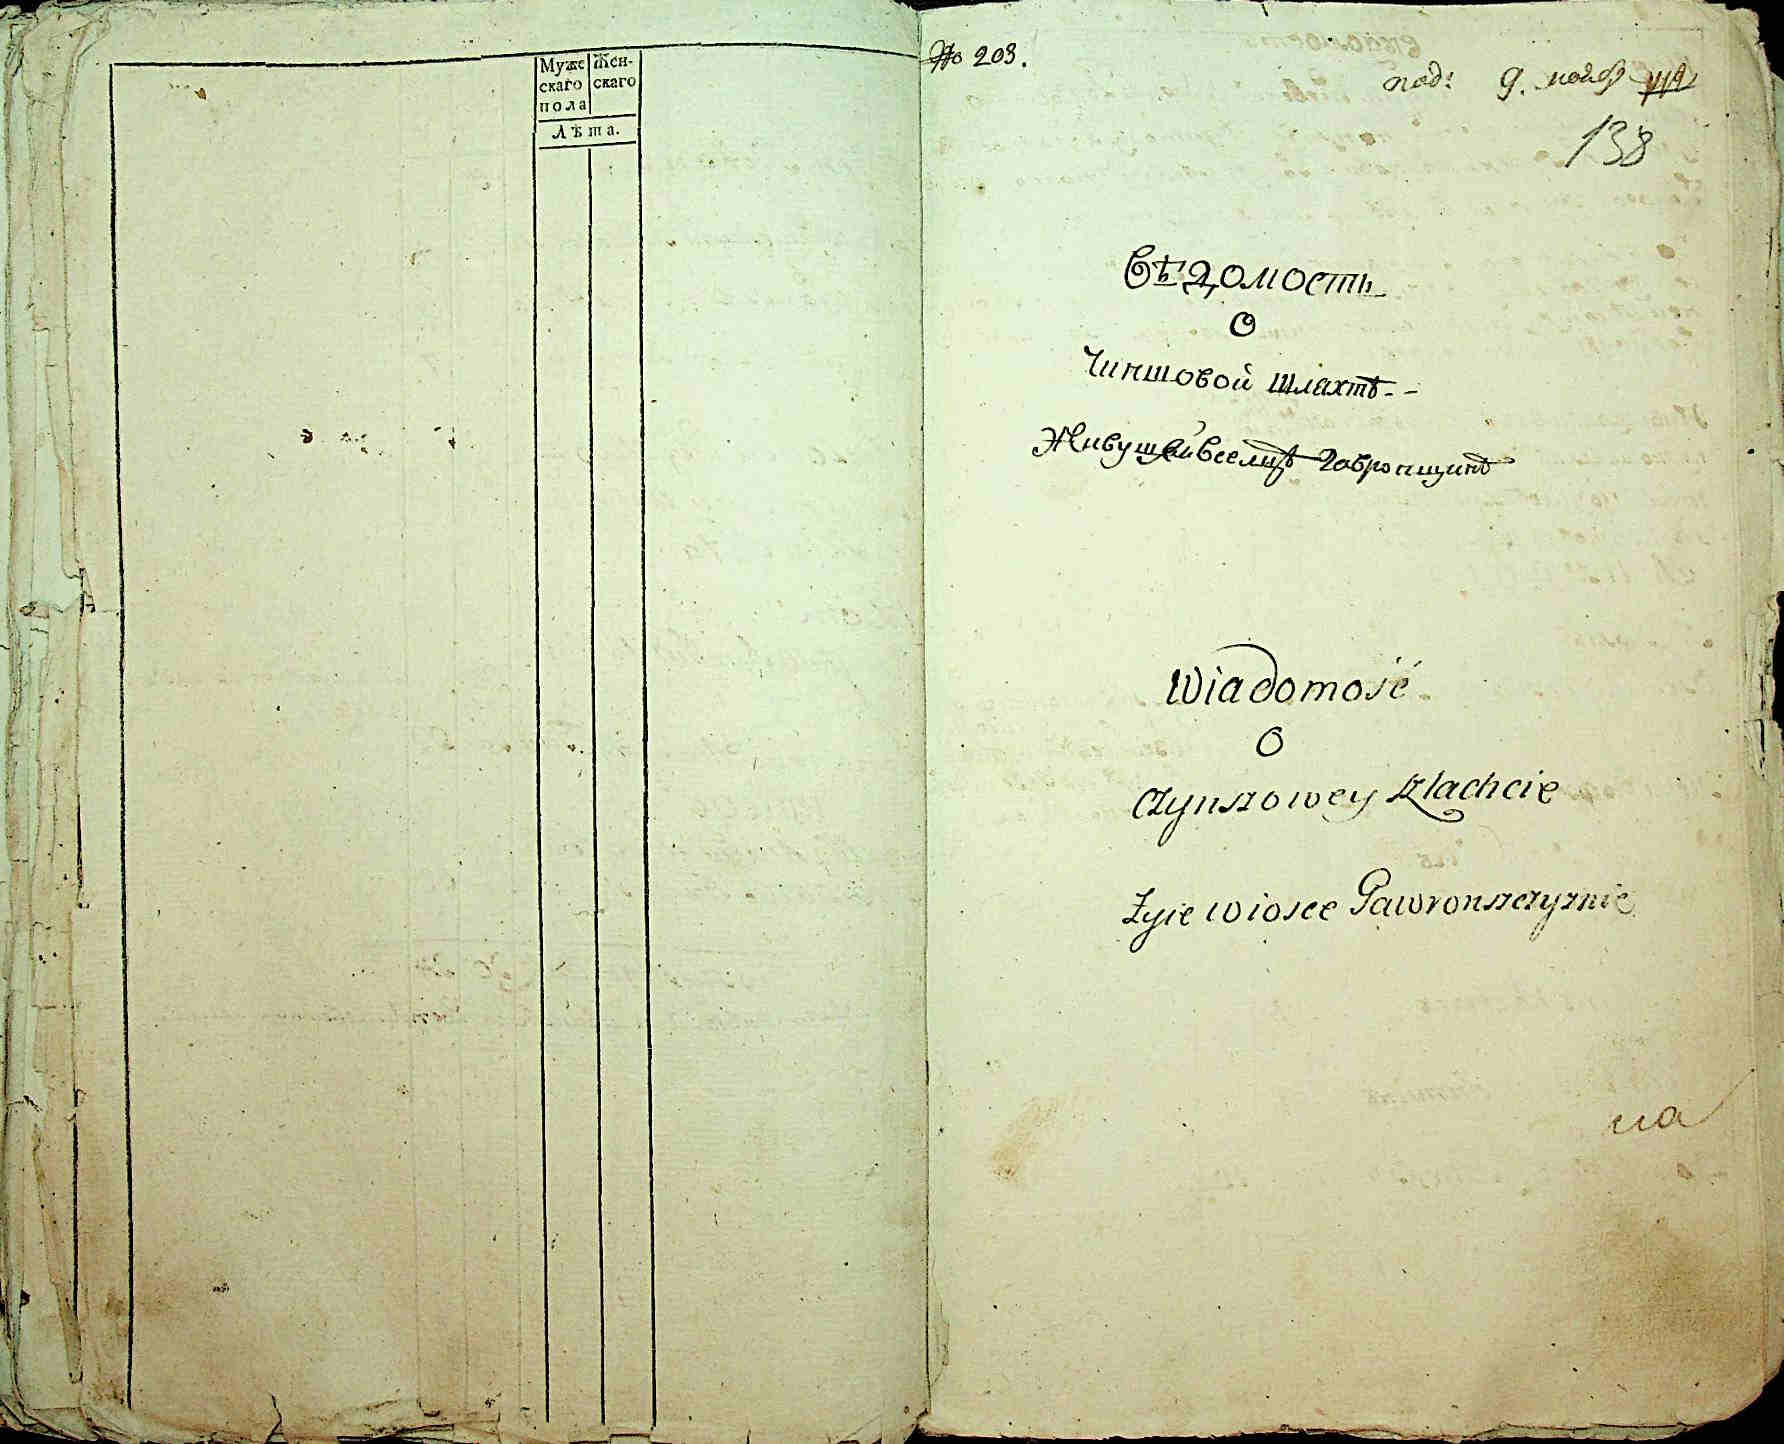 Муже
скаго
пола
Жен-
скаго
Лѣта.
No 203.
под: 9. нояб
138
Вѣдомость
О
Чиншовой шлахтѣ--
Живущей вселцѣ Гавронщинѣ
Wiadomość
O
Czynszowey Szlachcie
Żyie wiosce Gawronszczyznie
на